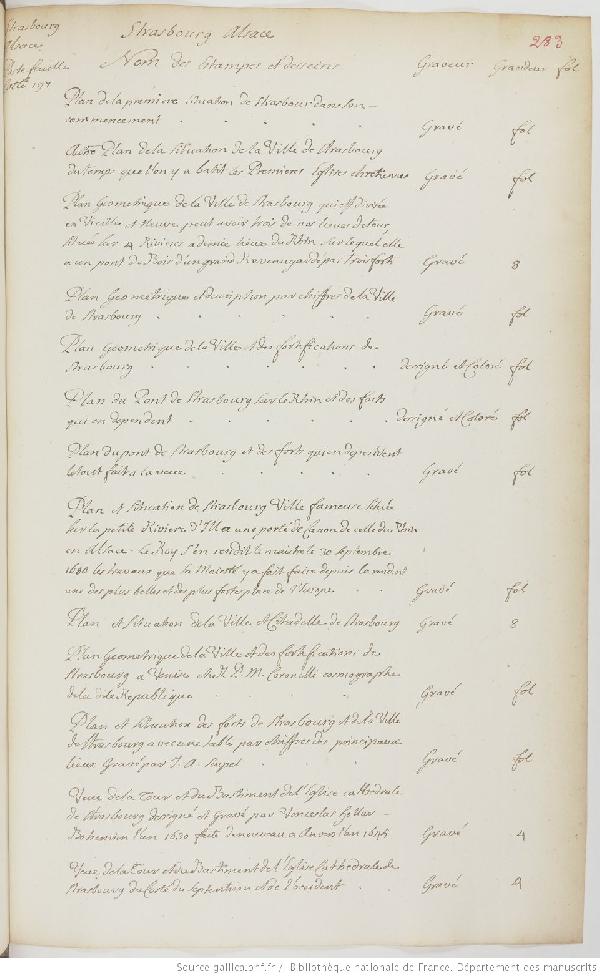 Strasbourg
Alsace
197
Strasbourg Alsace
283
Nom des Estampes et desseins Graveur Grandeur fol
Plan de la premiere situation de Strasbour dans son
commencement Gravé fol
Autre Plan de la situation de la Ville de Strasbourg
du temps que l'on y a batit les Premieres Eglises chretiennes Gravé fol
Plan Geometrique de la Ville de Strasbourg qui est divisée
en Vieille et Neuve, peut avoir trois de nos lieues de tour,
située sur 4 Rivieres a demie lieue du Rhin, sur lequel elle
a un pont de Bois d'un grand Revenu gardé par trois forts Gravé 8
Plan Geometrique et description par chiffres de la Ville
de Strasbourg Gravé fol
Plan Geometrique de la Ville et des fortifications de
Strasbourg dessigné et Coloré fol
Plan du Pont de Strasbourg sur le Rhin et des forts
qui en dependent dessigné et Coloré fol
Plan du pont de Strasbourg et des forts qui en dependent
le tout fait a la veue Gravé fol
Plan et situation de Strasbourg Ville fameuse située
sur la petite Riviere d'Ill a une portée de Canon de celle du Rhin
en Alsace. Le Roy s'en rendit le maistre le 30 septembre
1680 les travaux que sa Majesté y a fait faire depuis la rendent
une des plus belles et des plus fortes places de l'Europe Gravé fol
Plan et situation de la Ville et Citadelle de Strasbourg Gravé 8
Plan Geometrique de la Ville et des fortifications de
Strasbourg a Venise du P. M. Coronelli cosmographe
de la de Republique Gravé fol
Plan et situation des forts de Strasbourg et de la Ville
de Strasbourg avec une table par chiffres des principaux
lieux Gravé par J. A. Gravé fol
Veue de la Tour et du Bastiment de l'Eglise cathedrale
de Strasbourg designé et Gravé par Venceslas Hollar
Bohemien l'an 1630 faite de nouveau a Anvers l'an 1645 Gravé 4
Veue de la Tour et du Bastiment de l'Eglise Cathedrale de
Strasbourg du Costé du septentrion et de l'occident Gravé 4
Source gallica.bnf.fr / Bibliothèque nationale de France. Département des manuscrits